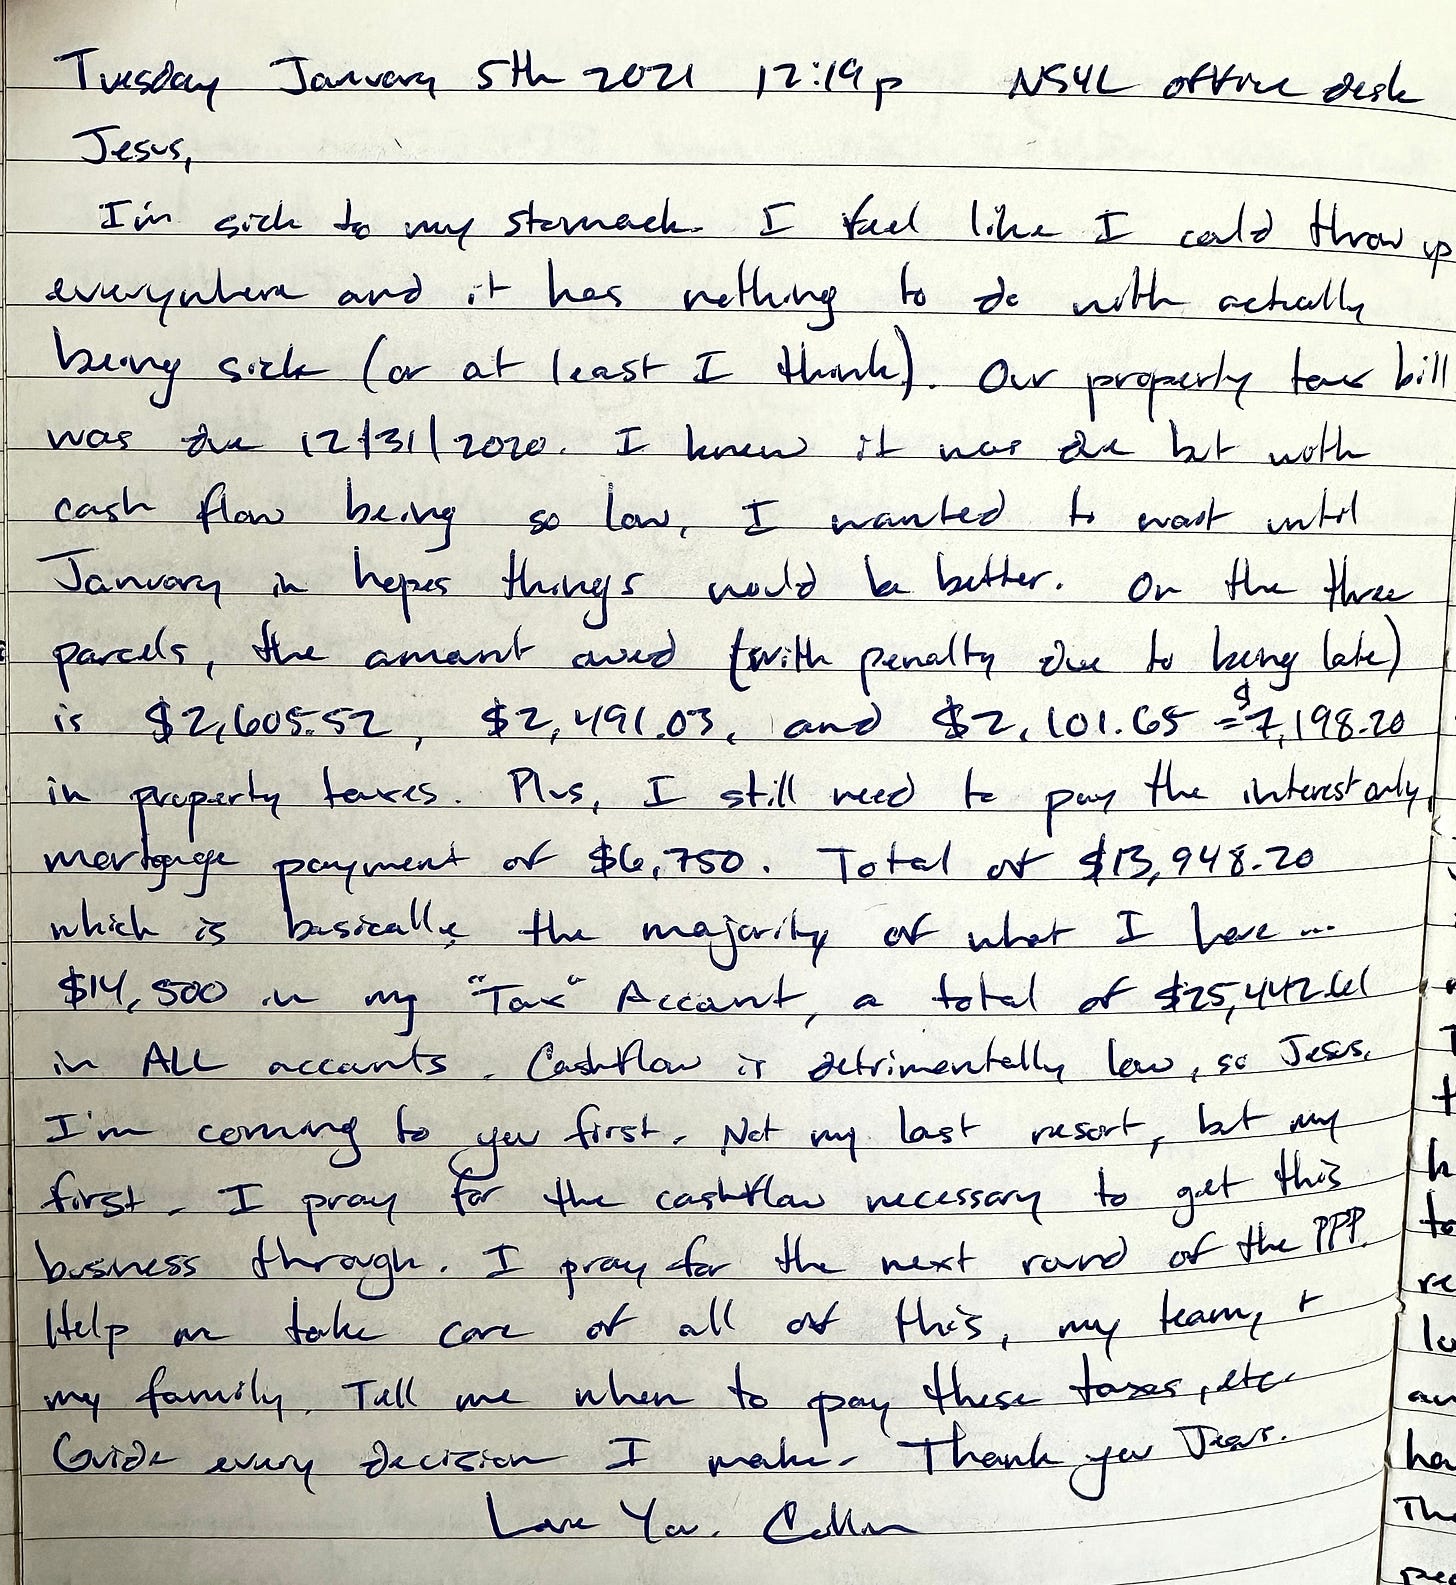 Tuesday January 5th 2021 12:19p NSYL office desk
Jesus,
I'm sick to my stomach. I feel like I could throw up
everywhere and it has nothing to do with actually
being sick (or at least I think). Our property tax bill
was due 12/31/2020. I knew it was due but with
cash flow being so low, I wanted to wait until
January in hopes things would be better. On the three
parcels, the amount owed (with penalty due to being late)
is $2,605.52, $2,491.03, and $2,101.65 = $7,198.20
in property taxes. Plus, I still need to pay the interest only
mortgage payment of $6,750. Total of $13,948.20
which is basically the majority of what I have...
$14,500 in my "Tax" Account, a total of $25,442.61
in ALL accounts. Cashflow is detrimentally low, so Jesus,
I'm coming to you first. Not my last resort, but my
first. I pray for the cashflow necessary to get this
business through. I pray for the next round of the PPP.
Help me take care of all of this, my team, +
my family. Tell me when to pay these taxes, etc.
Guide every decision I make. Thank you Jesus.
Love You.